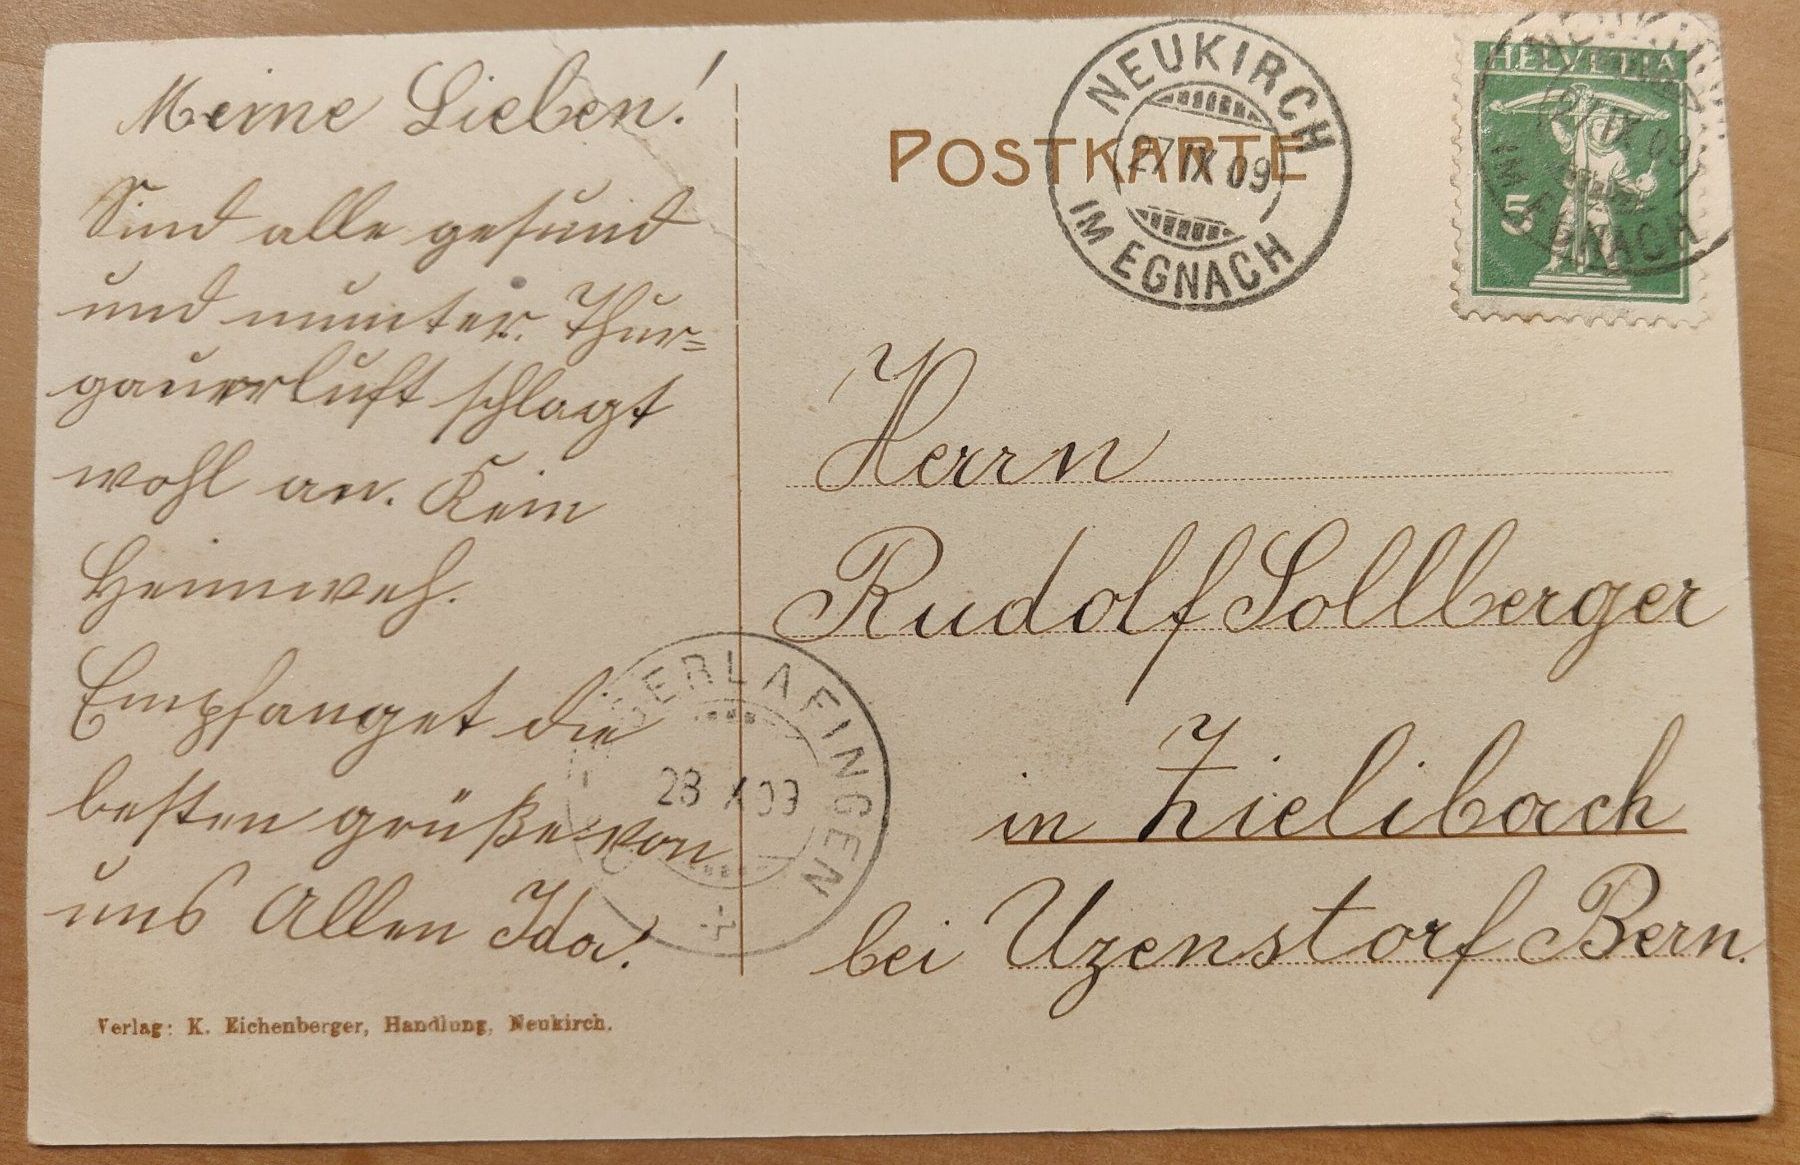 Meine Lieben!
Sind alle gesund
und munter. Thur=
gauerluft schlagt
wohl an. Kein
Heimweh.
Empfanget die
besten grüße von
uns Allen Ida!
Verlag: K. Eichenberger, Handlung, Neukirch.
POSTKARTE
NEUKIRCH
27 IX 09
IM EGNACH
HELVETIA
5
27 IX 09
IM EGNACH
Herrn
Rudolf Sollberger
in Zielibach
bei Uzenstorf Bern.
OBERLAFINGEN